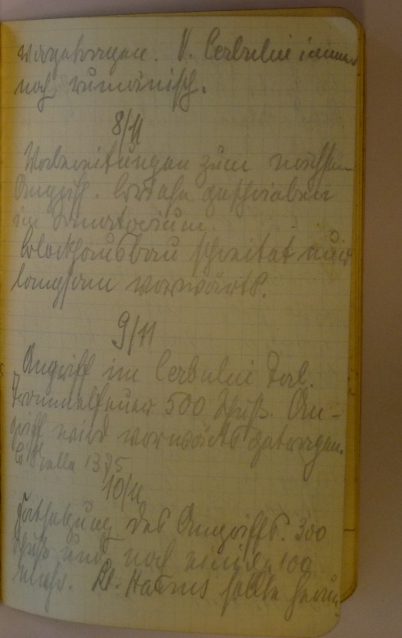 vorgetragen. V. Cerbului immer
noch rumänisch.
8/11
Vorbereitungen zum nächsten
Angriff. geschrieben
im Sanatorium.
Blockhausbau schreitet nur
langsam vorwärts.
9/11
Angriff im Cerbului Tal.
Trommelfeuer 500 Schuß. An-
griff wird vorwärts getragen.
1375
10/11
Fortsetzung des Angriffs. 300
Schuß und noch einmal 100
mehr. Lt. Harms sollte